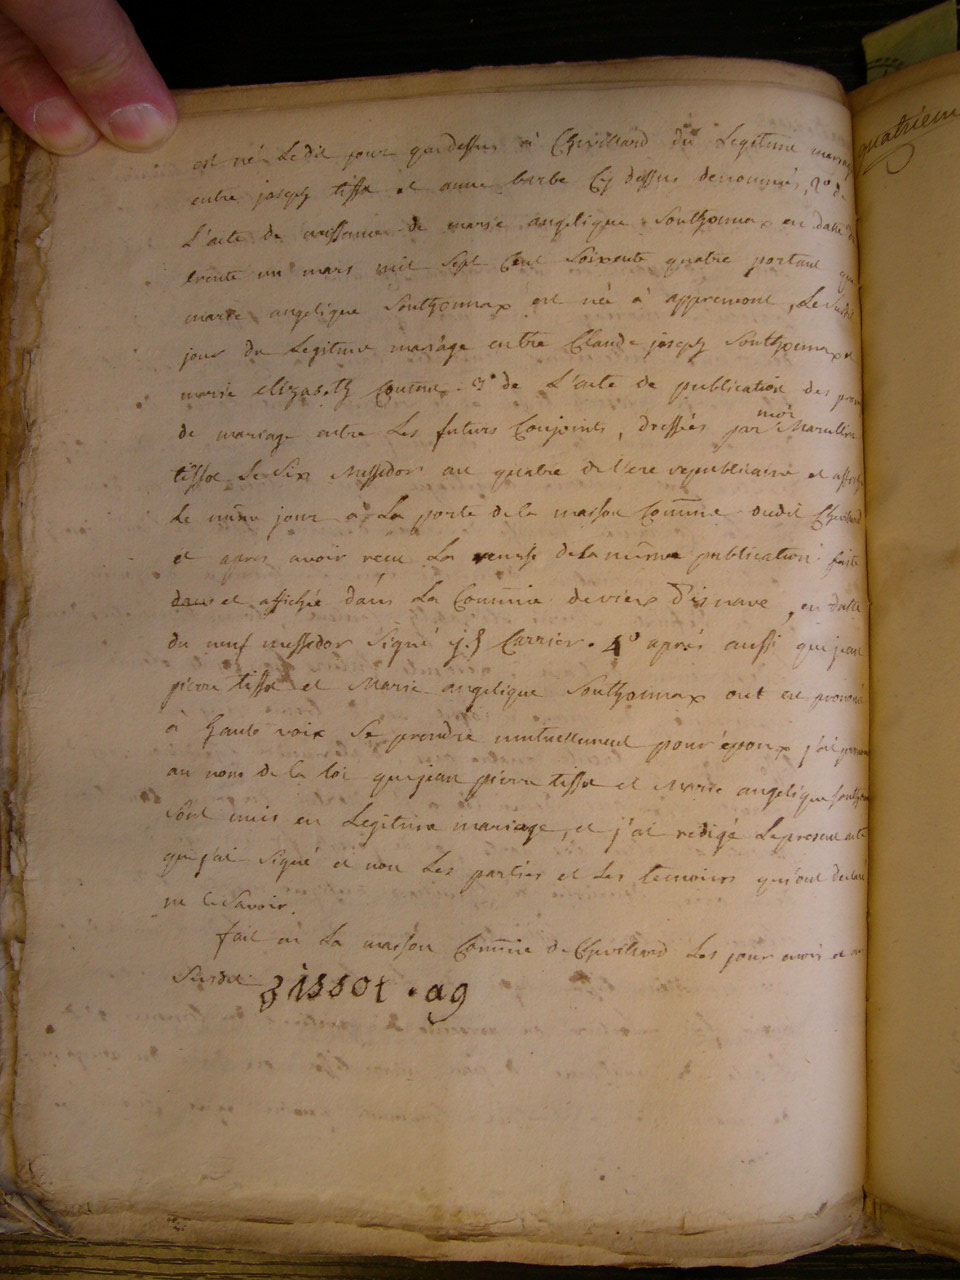 est né Ledit jour que dessus à Chevillard du Legitime mariag
entre joseph tissot et anne barbe Cy dessus denommés, 2° de
L'acte de naissance de marie angelique Southonnax en datte du
trente un mars mil Sept Cent Soixente quatre portant que
marie angelique Southonnax est née à appremont, Le Susdit
jour du Legitime mariage entre Claude joseph Southonnax et
marie elizabeth 3° de L'acte de publication des prom
de mariage entre Les futurs Conjoints, dressées par moi Marcellin
tissot Le Six Messidor an quatre de l'ere republicaine et affiché
Le même jour à La porte de la maison Commune dudit Chevillard
et apres avoir recu La remise de la même publication faite
dans et affichée dans La Commune de vieux d'isnave, en datte
du neuf messidor Signé j. f Carrier. 4° après aussi que jean
pierre tissot et Marie angelique Southonnax ont eu prononcé
à haute voix Se prendre mutuellement pour époux j'ai prononcé
au nom de la loi que jean pierre tissot et Marie angelique Southon
Sont unis en Legitime mariage, et j'ai redigé Le present acte
que j'ai Signé et non Les parties et Les temoins qui ont declaré
ne le Savoir.
fait en La maison Commune de Chevillard Les jour mois et an
Susdit tissot. ag
quatriem